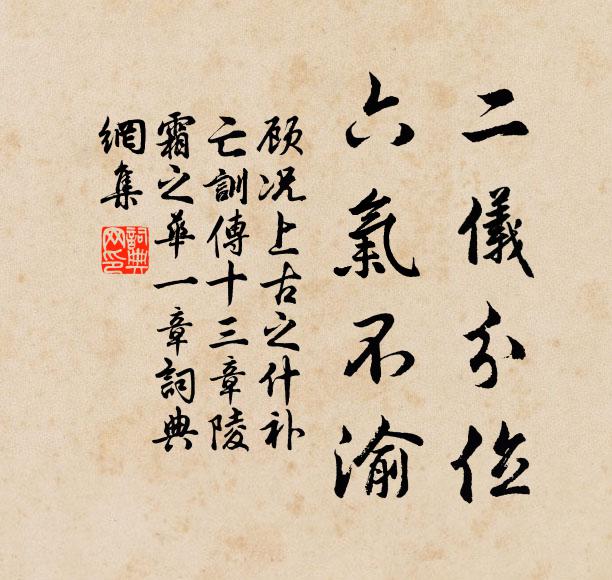 二儀分位
六氣不渝
顾况上古之什补
亡訓傳十三章陵
霜之華一章詞典
網集
詞典
网印